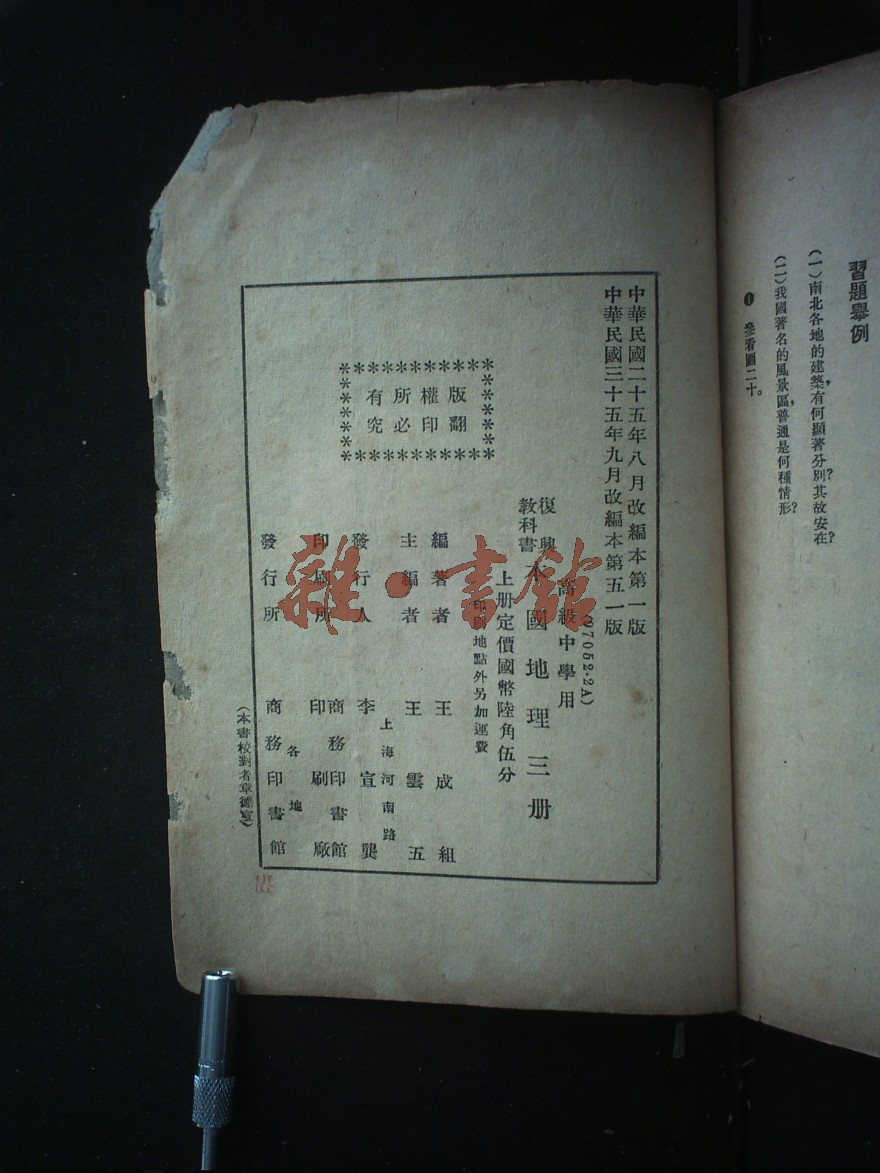 習題舉例
(一)南北各地的建築,有何顯著分別?其故安在?
(二)我國著名的風景區,普通是何種情形?
❶ 參看圖二十。
中華民國二十五年八月改編本第一版
中華民國三十五年九月改編本第五一版
(97052·2A)
高級中學用
復興教科書 本國地理三册
上册定價國幣陸角伍分
印刷地點外另加運費
版權所有
翻印必究
編著者 王成組
主編者 王雲五
上海河南路
發行人 李宣龔
印刷所 商務印書館印刷廠
各地
發行所 商務印書館
(本書校對者章德宣)
雜·書館